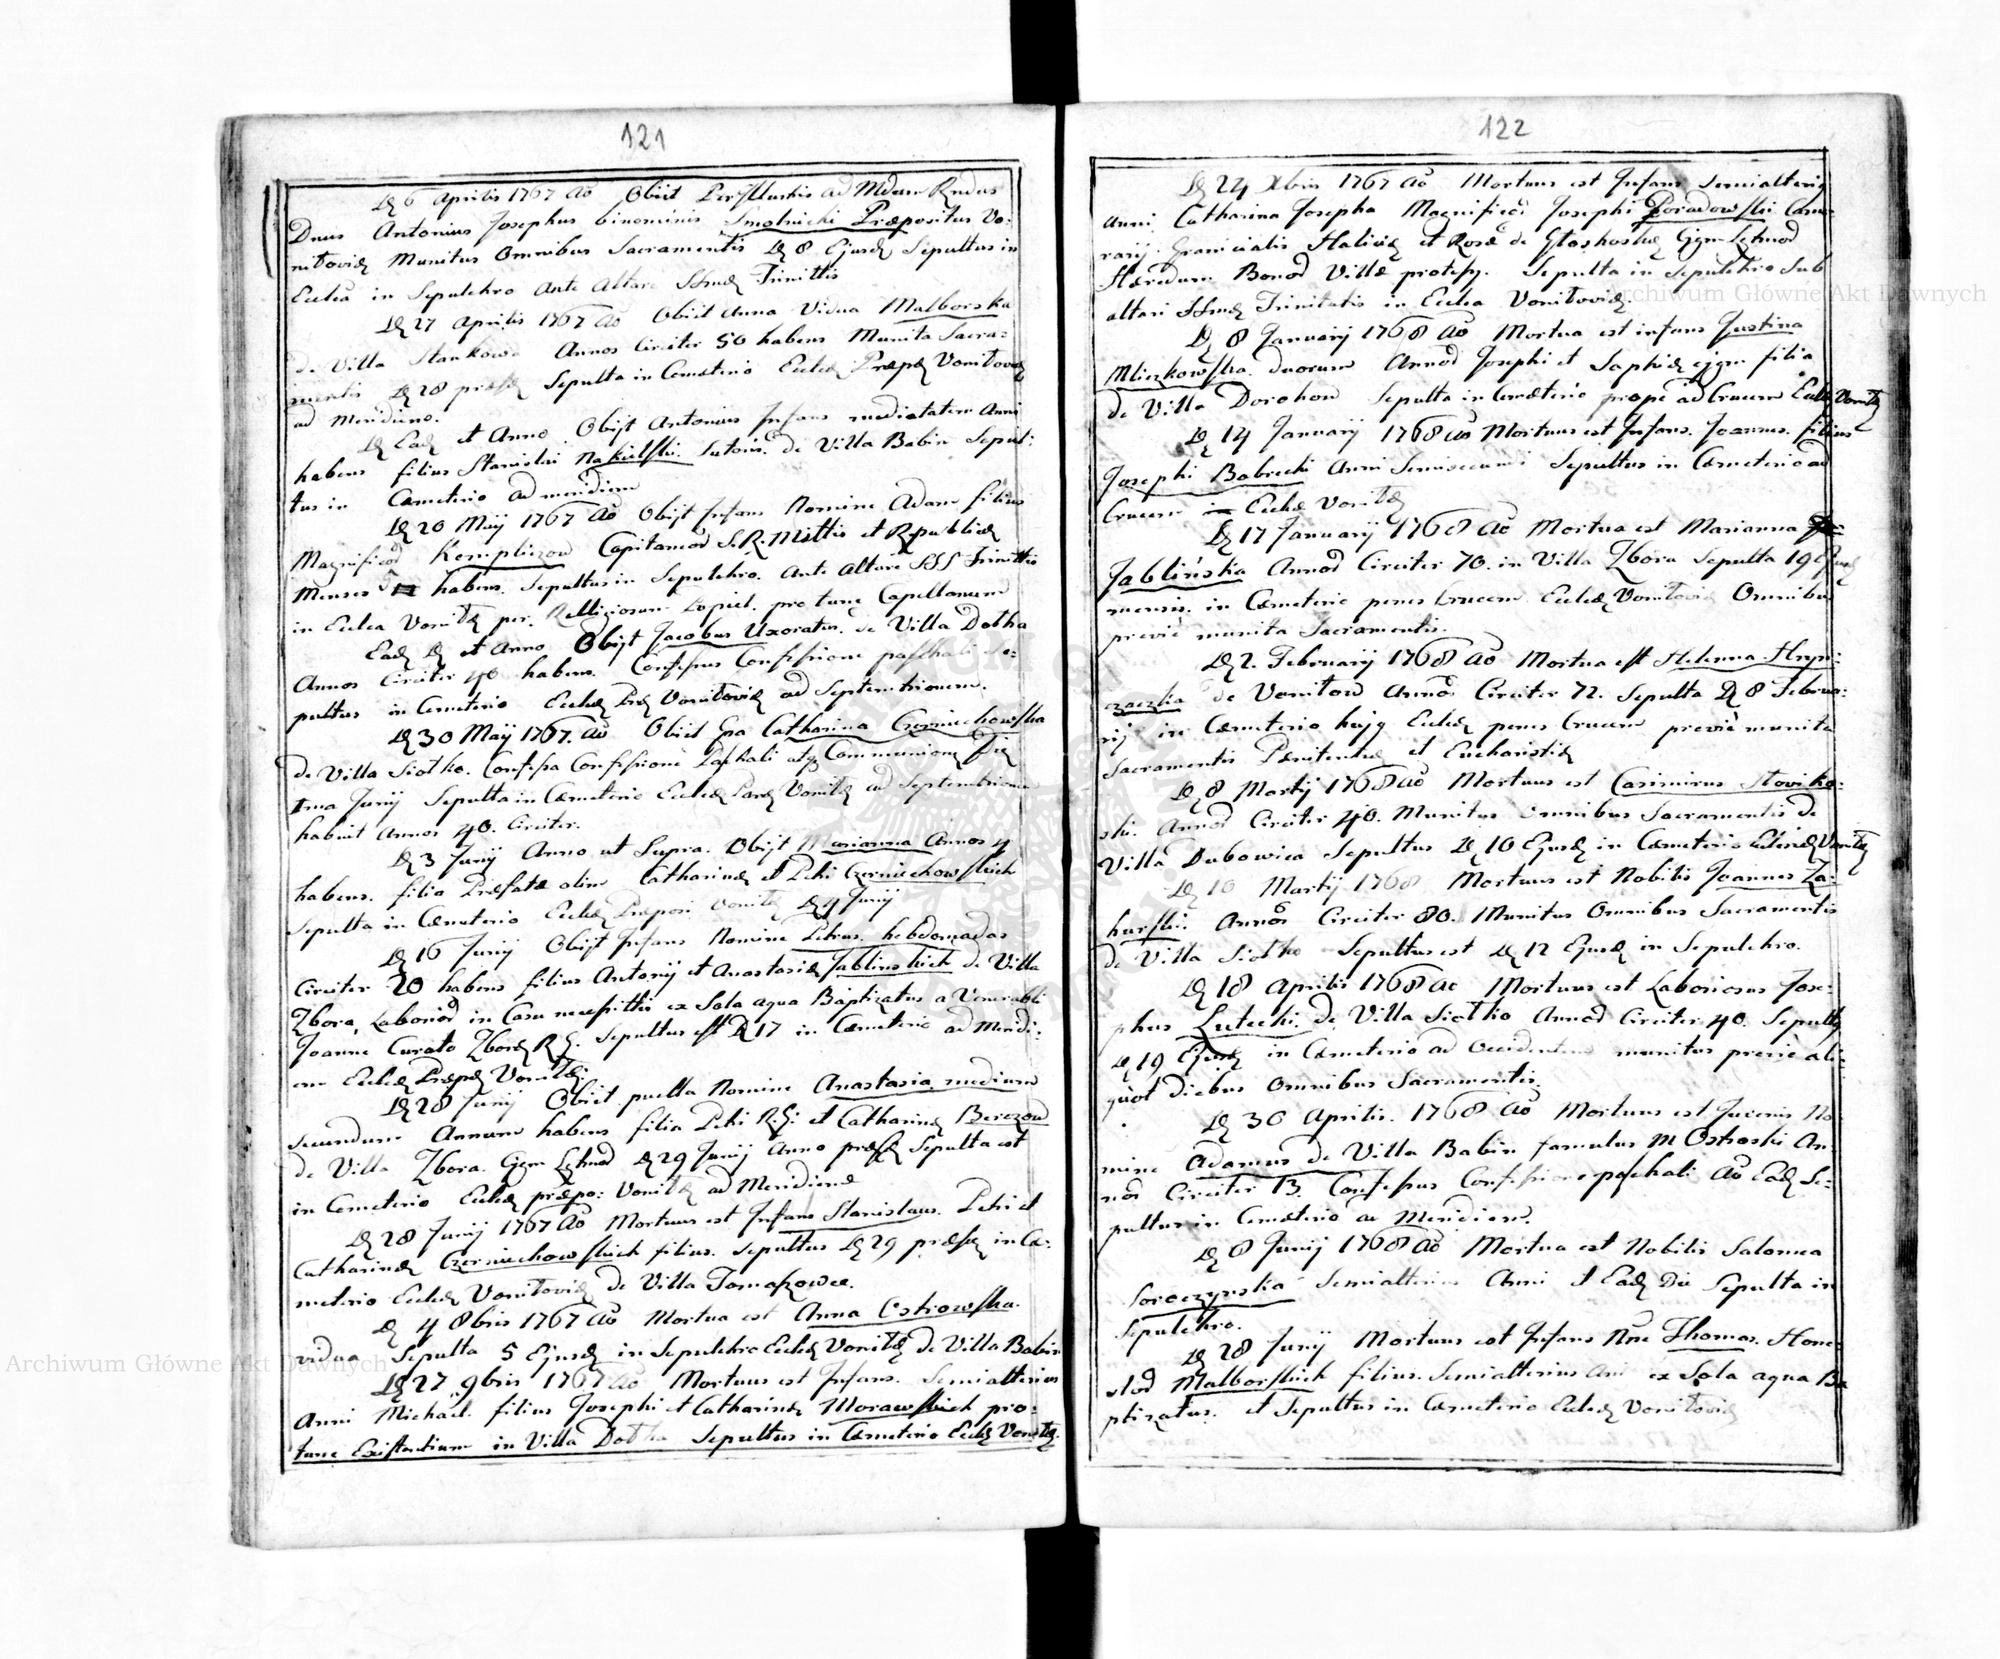 121
D 6 Aprilis 1767 Ao Obiit PerIllustris ac Mdum Rndus
Dnus Antonius Josephus binominis Smolnicki Præpositus Vo:
Munitus Omnibus Sacramentis D 8 Ejusd Sepultus in
Ecclia in Sepulchro Ante Altare SSmæ Trinittis
D 27 Aprilis 1767 Ao Obiit Anna Vidua Malborska
de Villa Stankowa Annos Circiter 50 habens Munita Sacra:
mentis D 28 præs Sepulta in Cæmeterio Eccliæ Præpæ Vonilovæ
ad Meridiem.
D Ead et Anno Obijt Antonius Infans medietatem Anni
habens filius Stanislai Nakielski Sutoris de Villa Babin Sepul:
tus in Cæmeterio ad meridiem
D 20 Maij 1767 Ao Obijt Infans Nomine Adam filius
Magnificor Kempliczow Capitaneor S. R. Mittis et Rpublicæ
Menses habens. Sepultus in Sepulchro. Ante Altare SSS Trinittis
in Ecclia Vonil per. Relligiosum pro tunc Capellanum
Ead D et Anno Obijt Jacobus Uxoratus de Villa Dołha
Annos Circiter 40 habens. Confessus Confessione paschali Se:
pultus in Cemeterio Eccliæ Vonilovie ad Septemtrionem.
D 30 Maij 1767. Ao Obiit Catharina Czerniechowska
de Villa Siołko. Confessa Confessione Paschali atq Communione Die
1ma Junij Sepulta in Cæmeterio Eccliæ Vonil ad Septemtrionem
habuit Annos 40. Circiter.
D 3 Junij Anno ut Supra. Obijt Marianna Annos 4
habens. filia Præfatæ olim Catharinæ et Petri Czerniechowskich
Sepulta in Cæmeterio Eccliæ Præpos Vonil D 4 Junij
D 16 Junij Obijt Infans Nomine Petrus. hebdomadas
Circiter 20 habens filius Antonij et Anastasiæ Jablinskich de Villa
Zbora, Laborior in Casu necessittis ex Sola aqua Baptizatus a Venerabili
Joanne Curato Zboræ R. G. Sepultus est D 17 in Cæmeterio ad Meridi:
em Eccliæ Præpæ Vonil
D 28 Junij Obiit puella Nomine Anastasia medium
Secundum Annum habens filia Petri R. G. et Catharinæ Berezow
de Villa Zbora. D 29 Junij Anno præs Sepulta est
in Cemeterio Eccliæ præpo: Vonil ad Meridiem
D 28 Junij 1767 Ao Mortuus est Infans Stanislaus. Petri et
Catharinæ Czerniechowskich filius. Sepultus D 29 præs in Cæ:
meterio Eccliæ Vonilovie de Villa Tomaszowce.
D 4 8bris 1767 Ao Mortua est Anna Ostrowska.
vidua Sepulta 5 Ejusd in Sepulchro Eccliæ Vonil de Villa Babin
D 27 9bris 1767 Ao Mortuus est Infans. Semialterius
Anni Michael. filius Josephi et Catharinæ Morawskich pro:
tunc Existentium in Villa Dołha Sepultus in Cæmeterio Eccliæ Vonil
122
D 24 Xbris 1767 Ao Mortuus est Infans Semialterius
Anni Catharina Josepha Magnificor Josephi Poradowski Came:
rarij Granicialis Haliciæ et Rosæ de
Hæredum Bonor Villæ Sepulta in Sepulchro Sub
altari SSmæ Trinitatis in Ecclia Vonilovie.
D 8 Januarij 1768 Ao Mortua est infans Justina
Mliczkowska duorum Annor Josephi et Sophiæ filia
de Villa Dorohow Sepulta in Cæmeterio prope ad Crucem Eccliæ Vonil
D 14 Januarij 1768 Ao Mortuus est Infans. Joannes. filius
Josephi Babecki Anni Sepultus in Cæmeterio ad
Crucem Eccliæ Vonil
D 17 Januarij 1768 Ao Mortua est Marianna
Jablińska Annor Circiter 70. in Villa Zbora Sepulta 19 Ejusd
mensis. in Cæmeterio penes Crucem Eccliæ Vonilovie Omnibus
previe munita Sacramentis.
D 2. Februarij 1768 Ao Mortua est Helenna Hryni:
czaczka de Vonilow Annor Circiter 72. Sepulta D 8 Februa:
rij in Cæmeterio hujq Eccliæ penes Crucem previe munita
Sacramentis Pænitentiæ et Eucharistiæ
D 8 Martij 1768 Ao Mortuus est Casimirus Słovikow:
ski. Annor Circiter 40. Munitus omnibus Sacramentis de
Villa Dubowica Sepultus D 10 Ejusd in Cæmeterio Eccliæ Vonil
D 10 Martij 1768 Mortuus est Nobilis Joannes Za:
hurski. Annor Circiter 80. Munitus Omnibus Sacramentis
de Villa Siołko Sepultus est D 12 Ejusd in Sepulchro.
D 18 Aprilis 1768 Ao Mortuus est Laboriosus Jose:
phus Lutecki de Villa Siołko Annor Circiter 40. Sepultq
D 19 Ejusd in Cæmeterio ad Occidentem munitus previe ali:
quot diebus Omnibus Sacramentis.
D 30 Aprilis. 1768 Ao Mortuus est Juvenis No:
mine Adamus de Villa Babin famulus M Ostroski An:
nor Circiter 13. Confessus Confessione paschali Ao Ead Se:
pultus in Cemæterio ad Meridiem.
D 8 Junij 1768 Ao Mortua est Nobilis Salomea
Soroczynska Semialterius Anni et Ead Die Sepulta in
Sepulchro.
D 28 Junij Mortuus est Infans Nne Thomas. Hone:
stor Malborskich filius. Semialterius Ani ex Sola aqua Ba
ptizatus. et Sepultus in Cæmeterio Eccliæ Vonilovie
Archiwum Główne Akt Dawnych
Archiwum Główne Akt Dawnych